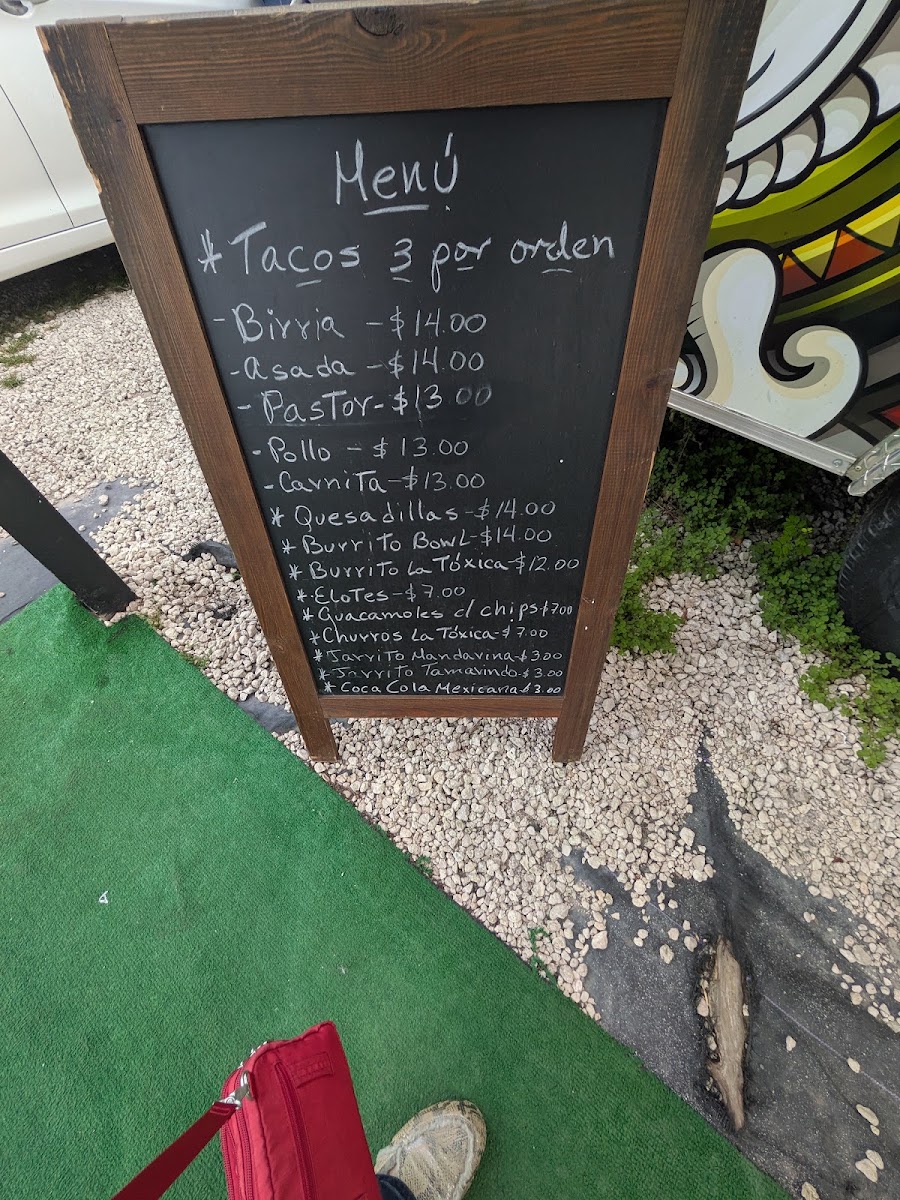 Menú
* Tacos 3 por orden
- Birria - $14.00
- Asada - $14.00
- Pastor - $13.00
- Pollo - $13.00
- Carnita - $13.00
* Quesadillas - $14.00
* Burrito Bowl - $14.00
* Burrito La Tóxica - $12.00
* Elotes - $7.00
* Guacamoles c/ chips $7.00
* Churros La Tóxica - $7.00
* Jarrito Mandarina - $3.00
* Jarrito Tamarindo - $3.00
* Coca Cola Mexicana $3.00